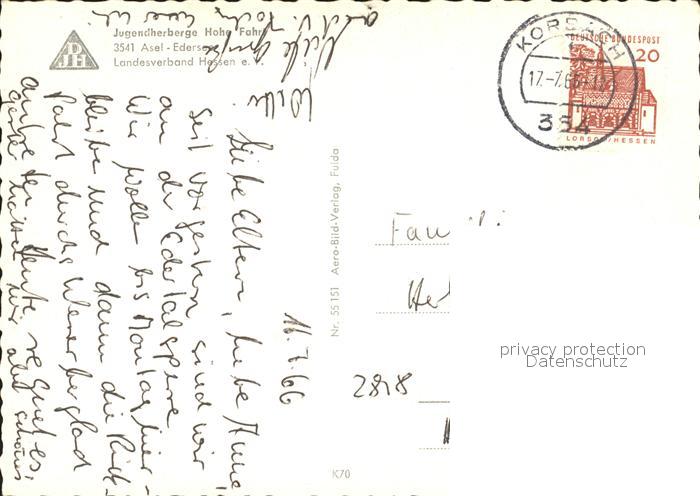 Jugendherberge Hohe Fahrt
3541 Asel - Edersee
Landesverband Hessen e. V.
KORBACH
17.-7.66
354
DEUTSCHE BUNDESPOST
20
LORSCH/HESSEN
16.7.66
Liebe Eltern, liebe Anne,
seit vorgestern sind wir
an der Edertalsperre.
Wir wollen bis Montag hier-
bleiben und dann die Rück-
fahrt durchs Weserbergland
antreten. Heute regnet es,
Viele Grüße
Willi
Nr. 55 151 Aero-Bild-Verlag, Fulda
Fam
2818
K70
privacy protection
Datenschutz